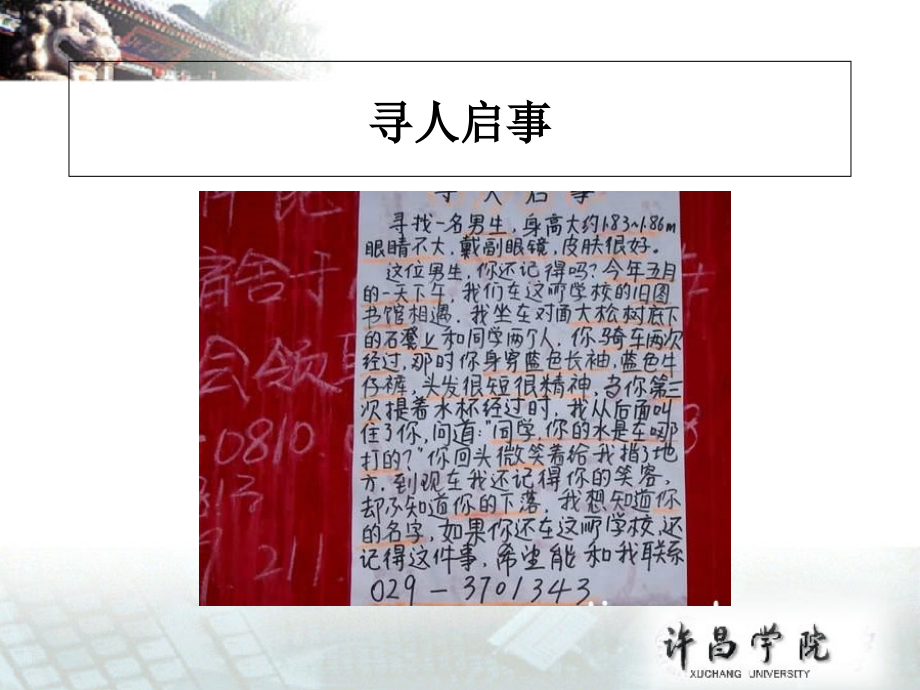 寻人启事
寻人启事
寻找一名男生，身高大约1.83~1.86m
眼睛不大，戴副眼镜，皮肤很好。
这位男生，你还记得吗？今年五月
的一天下午，我们在这所学校的旧图
书馆相遇。我坐在对面大松树底下
的石凳上和同学两个人，你骑车两次
经过，那时你身穿蓝色长袖，蓝色牛
仔裤，头发很短很精神，当你第三
次提着水杯经过时，我从后面叫
住了你，问道："同学，你的水是在哪
打的？"你回头微笑着给我指了地
方，到现在我还记得你的笑容，
却不知道你的下落，我想知道你
的名字，如果你还在这所学校，还
记得这件事，希望能和我联系
029-3701343
宿舍于
会领
0810
211
许昌学院
XUCHANG UNIVERSITY